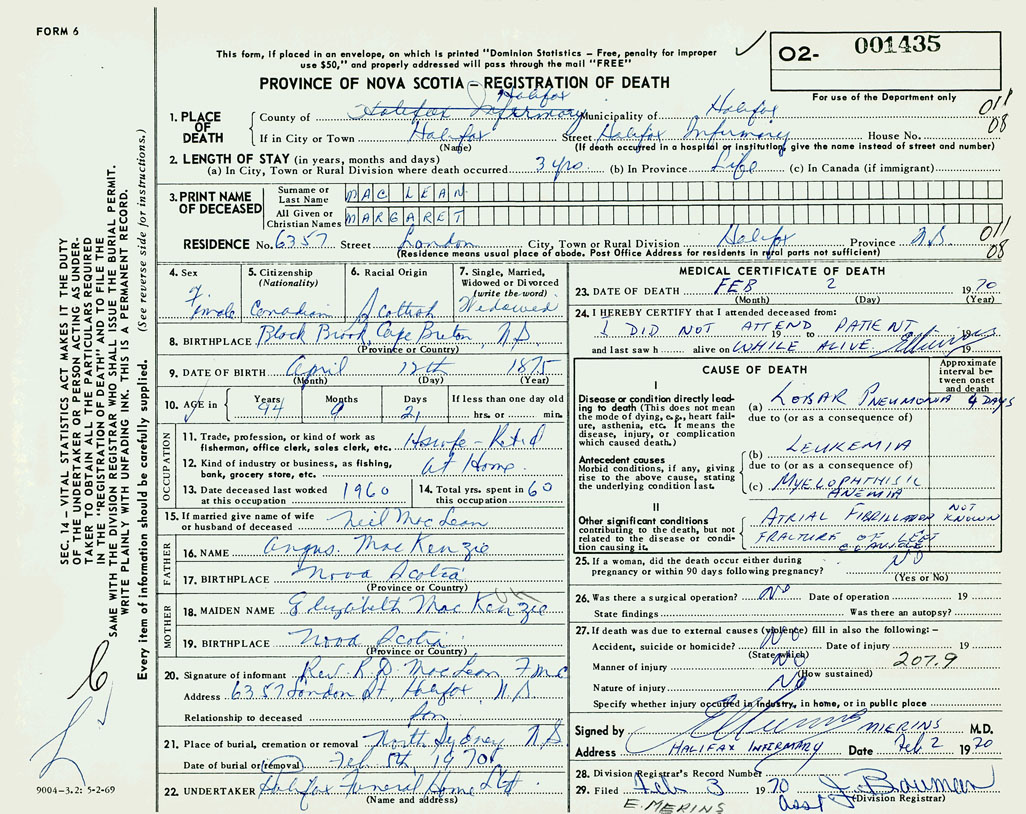 FORM 6
This form, if placed in an envelope, on which is printed "Dominion Statistics – Free, penalty for improper
use $50," and properly addressed will pass through the mail "FREE"
O2- 001435
For use of the Department only
PROVINCE OF NOVA SCOTIA – REGISTRATION OF DEATH
011
08
1. PLACE OF DEATH
County of Halifax Infirmary Halifax Municipality of Halifax
If in City or Town Halifax Street Halifax Infirmary House No.
(Name) (If death occurred in a hospital or institution, give the name instead of street and number)
2. LENGTH OF STAY (in years, months and days)
(a) In City, Town or Rural Division where death occurred 3 yrs. (b) In Province Life (c) In Canada (if immigrant)
3. PRINT NAME OF DECEASED
Surname or Last Name MAC LEAN
All Given or Christian Names MARGARET
RESIDENCE No. 6357 Street London City, Town or Rural Division Halifax Province N.S
(Residence means usual place of abode. Post Office Address for residents in rural parts not sufficient)
011
08
4. Sex Female
5. Citizenship (Nationality) Canadian
6. Racial Origin Scottish
7. Single, Married, Widowed or Divorced (write the word) Widowed
8. BIRTHPLACE Black Brook, Cape Breton, N.S.
(Province or Country)
9. DATE OF BIRTH April 12th 1875
(Month) (Day) (Year)
10. AGE in Years Months Days If less than one day old
94 9 21 hrs. or min.
OCCUPATION
11. Trade, profession, or kind of work as
fisherman, office clerk, sales clerk, etc. Hswfe - Retd
12. Kind of industry or business, as fishing,
bank, grocery store, etc. at Home.
13. Date deceased last worked at this occupation 1960
14. Total yrs. spent in this occupation 60
15. If married give name of wife
or husband of deceased Neil MacLean
FATHER
16. NAME Angus. MacKenzie
17. BIRTHPLACE Nova Scotia
(Province or Country)
MOTHER
18. MAIDEN NAME Elizabeth MacKenzie
19. BIRTHPLACE Nova Scotia
(Province or Country)
20. Signature of informant Rev. R.D. MacLean
Address 6357 London St, Halifax, N.S
Relationship to deceased Son
21. Place of burial, cremation or removal North Sydney N.S
Date of burial or removal Feb. 5th, 1970
22. UNDERTAKER Halifax Funeral Home Ltd.
(Name and address)
MEDICAL CERTIFICATE OF DEATH
23. DATE OF DEATH FEB 2 1970
(Month) (Day) (Year)
24. I HEREBY CERTIFY that I attended deceased from:
I DID NOT ATTEND PATIENT 19 to 19
and last saw h alive on WHILE ALIVE 19
CAUSE OF DEATH
Approximate interval between onset and death
I
Disease or condition directly leading to death (This does not mean the mode of dying, e.g., heart failure, asthenia, etc. It means the disease, injury, or complication which caused death.)
(a) LOBAR PNEUMONIA 4 DAYS
due to (or as a consequence of)
Antecedent causes
Morbid conditions, if any, giving rise to the above cause, stating the underlying condition last.
(b) LEUKEMIA
due to (or as a consequence of)
(c) MYELOPHTHISIC ANEMIA
II
Other significant conditions
contributing to the death, but not related to the disease or condition causing it.
ATRIAL FIBRILLATION NOT KNOWN
FRACTURE OF LEFT
25. If a woman, did the death occur either during
pregnancy or within 90 days following pregnancy? NO
(Yes or No)
26. Was there a surgical operation? NO Date of operation 19
State findings Was there an autopsy?
27. If death was due to external causes (violence) fill in also the following:–
Accident, suicide or homicide? NO Date of injury 19
(State which)
Manner of injury NO 207.9
(How sustained)
Nature of injury NO
Specify whether injury occurred in industry, in home, or in public place
Signed by MIERINS M.D.
Address HALIFAX INFIRMARY Date Feb 2 1970
28. Division Registrar's Record Number
29. Filed Feb 3 1970 Asst J. Bauman
(Division Registrar)
E. MERINS
SEC. 14 – VITAL STATISTICS ACT MAKES IT THE DUTY
OF THE UNDERTAKER OR PERSON ACTING AS UNDER-
TAKER TO OBTAIN ALL THE PARTICULARS REQUIRED
IN THE "REGISTRATION OF DEATH" AND TO FILE THE
SAME WITH THE DIVISION REGISTRAR WHO SHALL ISSUE THE BURIAL PERMIT.
WRITE PLAINLY WITH UNFADING INK. THIS IS A PERMANENT RECORD.
Every item of information should be carefully supplied. (See reverse side for instructions.)
9004-3.2: 5-2-69